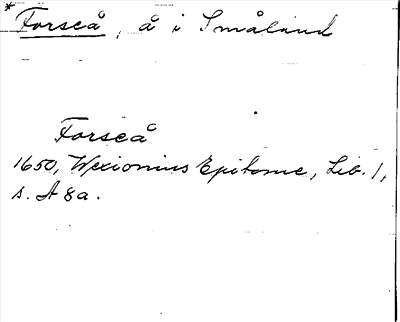 * Forseå, å i Småland
Forseå
1650, Wexionius Epitome, Lib. 1,
s. A 8a.